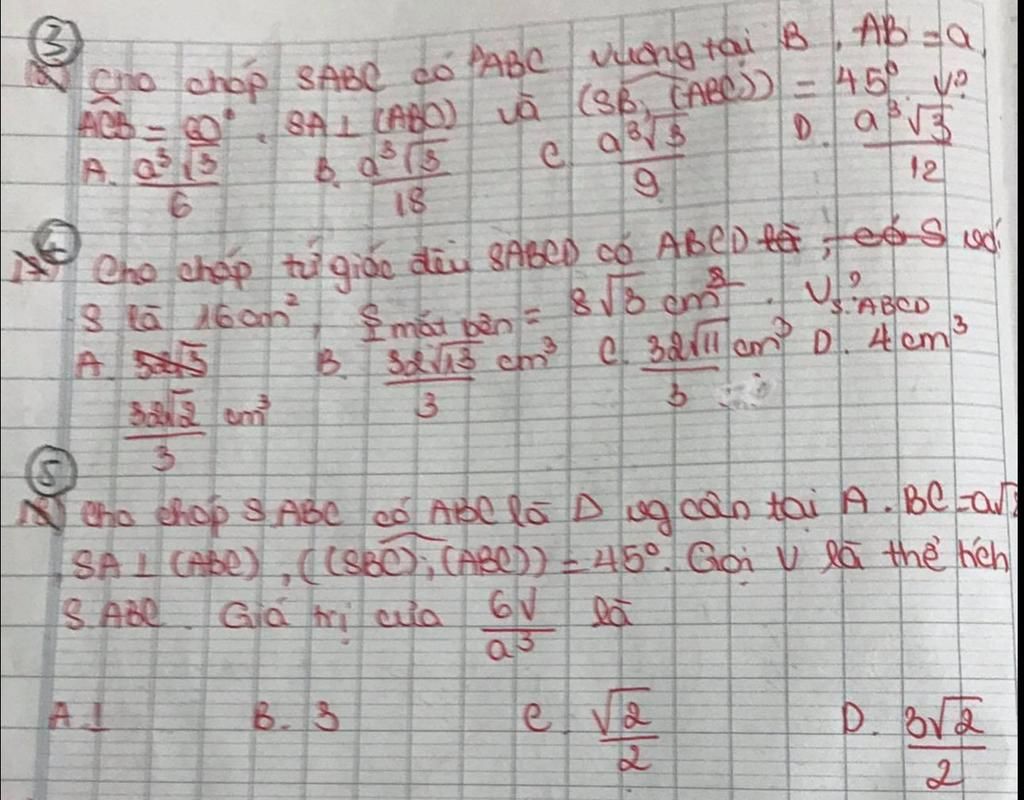 ③
Cho chóp SABC có ΔABC vuông tại B, AB = a,
ACB = 60°. SA⊥(ABC) và (SB, (ABC)) = 45°. V?
A. a³√3/6 B. a³√3/18 C. a³√3/9 D. a³√3/12
④
Cho chóp tứ giác đều SABCD có ABCD
S là 16cm², S 1 mặt bên = 8√3 cm². V S.ABCD?
A. 32√2/3 cm³ B. 32√13/3 cm³ C. 32√11/3 cm³ D. 4cm³
⑤
Cho chóp SABC có ABC là Δ vg cân tại A. BC=a√2
SA⊥(ABC), ((SBC);(ABC)) = 45°. Gọi V là thể tích
SABC. Giá trị của 6V/a³ là
A. 1 B. 3 C. √2/2 D. 3√2/2